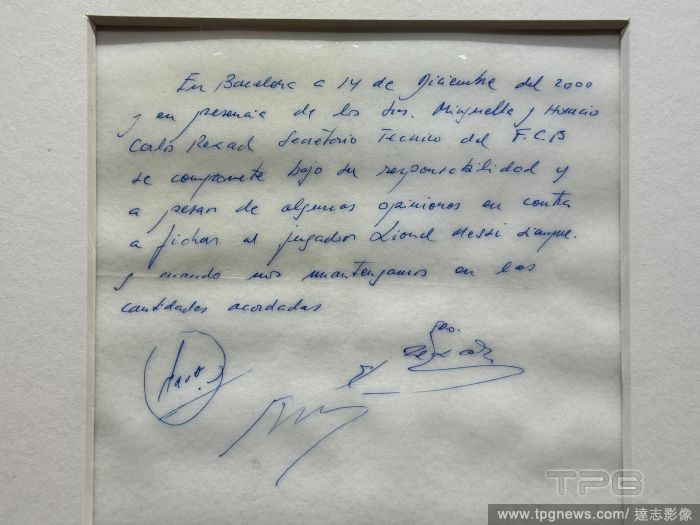 En Barcelona a 14 de Diciembre del 2000
y en presencia de los Sres. Minguella y Horacio
Carlos Rexach Secretario Tecnico del F.C.B
se compromete bajo su responsabilidad y
a pesar de algunas opiniones en contra
a fichar al jugador Lionel Messi siempre
y cuando nos mantengamos en las
cantidades acordadas
TPG
www.tpgnews.com/ 達志影像